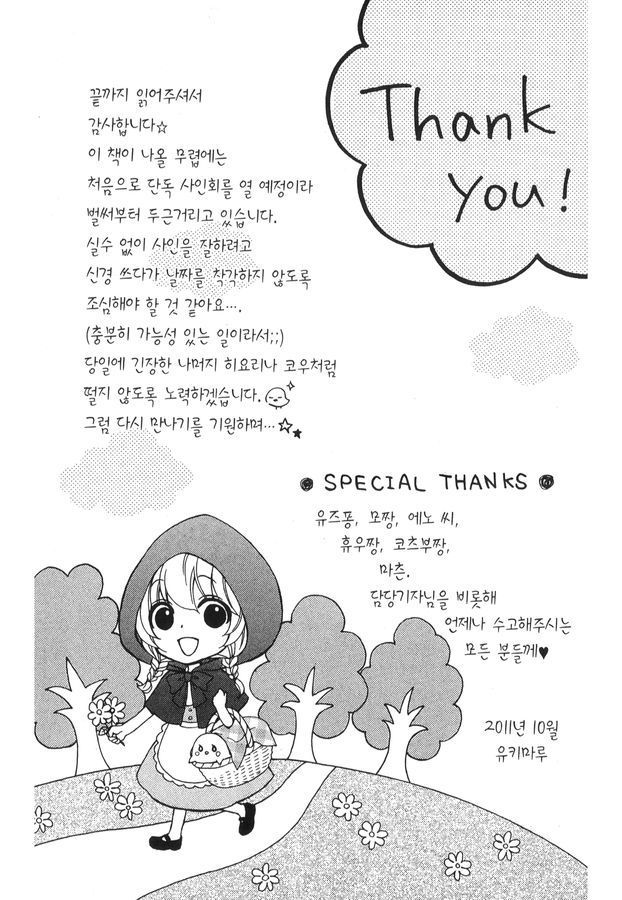 Thank
You!
끝까지 읽어주셔서
감사합니다☆
이 책이 나올 무렵에는
처음으로 단독 사인회를 열 예정이라
벌써부터 두근거리고 있습니다.
실수 없이 사인을 잘하려고
신경 쓰다가 날짜를 착각하지 않도록
조심해야 할 것 같아요….
(충분히 가능성 있는 일이라서;;)
당일에 긴장한 나머지 히요리나 코우처럼
떨지 않도록 노력하겠습니다.
그럼 다시 만나기를 기원하며…☆★
● SPECIAL THANKS ●
유즈퐁, 모짱, 에노 씨,
휴우짱, 코츠부짱,
마츤.
담당기자님을 비롯해
언제나 수고해주시는
모든 분들께♥
2011년 10월
유키마루